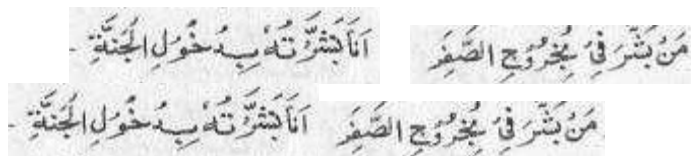 مَنْ بَشَّرَ فِىْ بِخُرُوْجِ الصَّفَرَ اَنَا بَشَّرْتُهٗ بِدُخُوْلِ الْجَنَّةِ -
مَنْ بَشَّرَ فِىْ بِخُرُوْجِ الصَّفَرَ اَنَا بَشَّرْتُهٗ بِدُخُوْلِ الْجَنَّةِ -